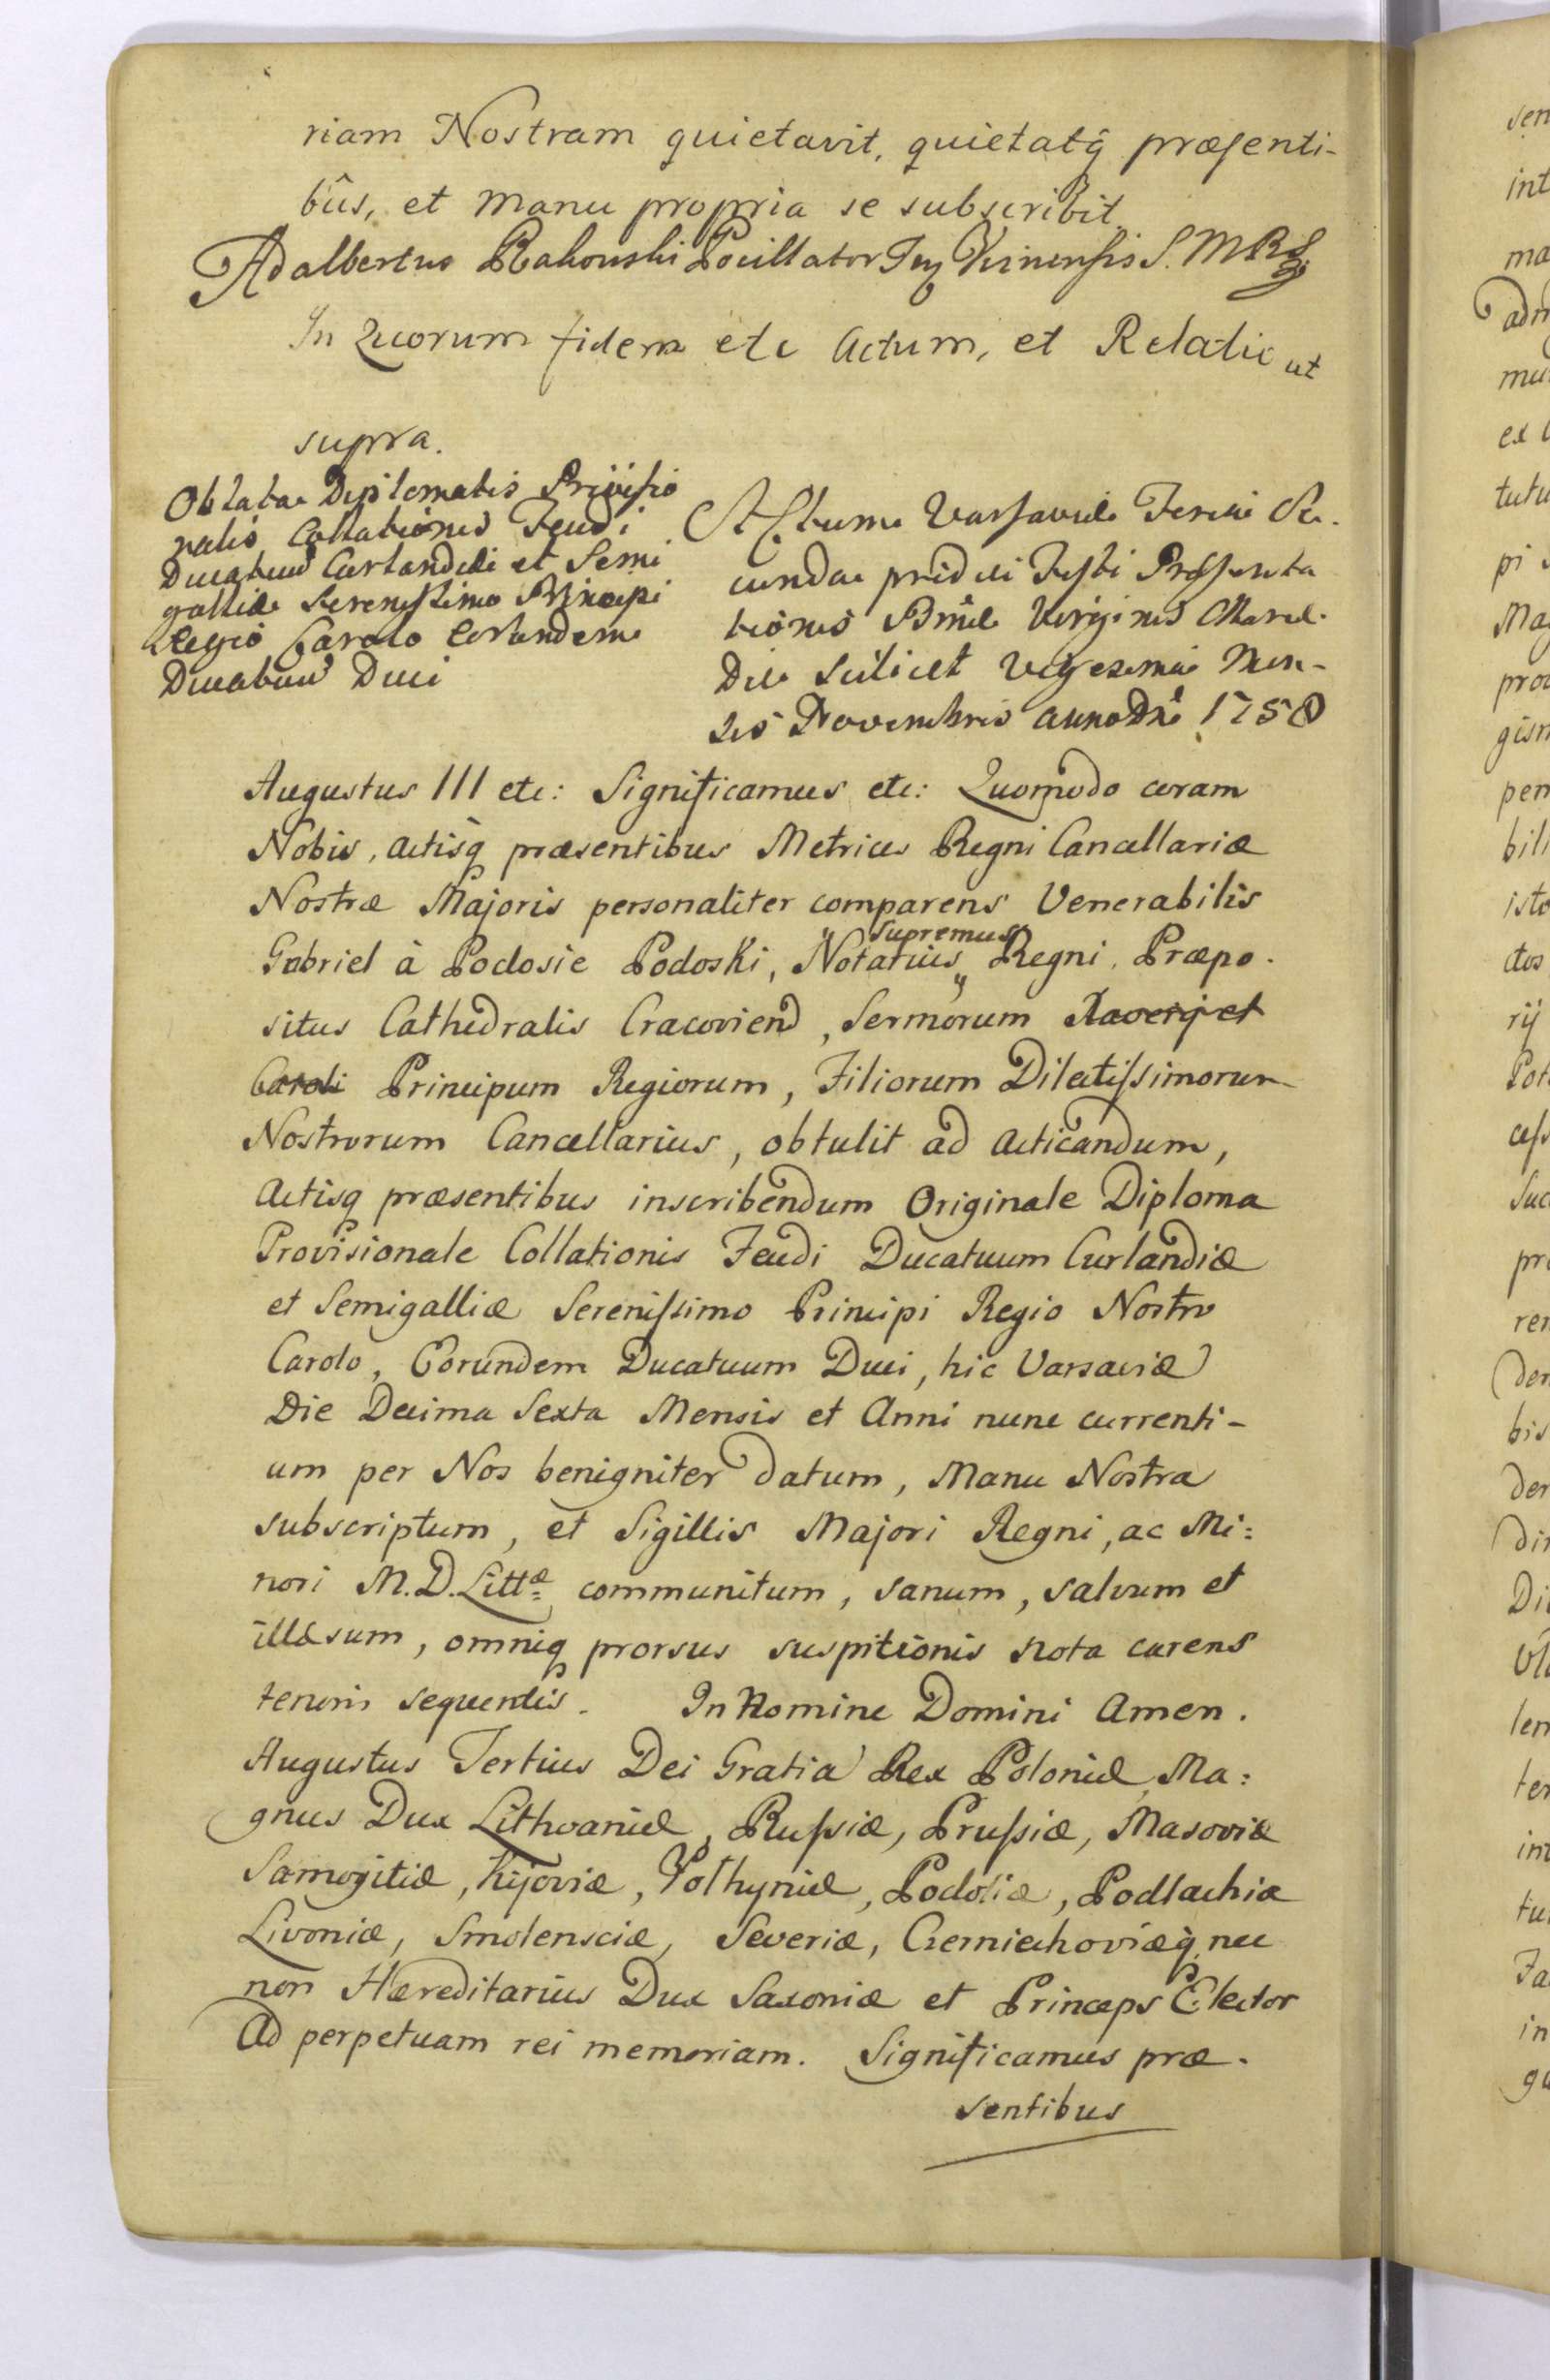 riam Nostram quietavit, quietatq̃ præsenti-
bûs, et manu propria se subscribit
Adalbertus Rakouski Pocillator S. M R
In Quorum fidem etc Actum, et Relatio ut
supra.
Oblata Diplomatis Provisio
nalis Collationis Feudi
Ducatuum Curlandiæ et Semi
galliæ Serenissimo Principi
Regio Carolo Eorundem
Ducatuum Duci
Actum Varsaviæ Feria Se-
cunda pridie Festi Præsenta
tionis Bmæ Virginis Mariæ.
Die scilicet Vigesima Men-
sis Novembris anno Dni 1758
Augustus III etc: Significamus etc: Quomodo coram
Nobis, actisq præsentibus Metrices Regni Cancellariæ
Nostræ Majoris personaliter comparens Venerabilis
Gabriel à Podosie Podoski, Notarius supremus Regni, Præpo-
situs Cathedralis Cracovien, Sermorum Xaverij et
Caroli Principum Regiorum, Filiorum Dilectissimorum
Nostrorum Cancellarius, obtulit ad acticandum,
actisq præsentibus inscribendum Originale Diploma
Provisionale Collationis Feudi Ducatuum Curlandiæ
et Semigalliæ Serenissimo Principi Regio Nostro
Carolo, Eorundem Ducatuum Duci, hic Varsaviæ
Die Decima Sexta Mensis et Anni nunc currenti-
um per Nos benigniter datum, Manu Nostra
subscriptum, et Sigillis Majori Regni, ac Mi:
nori M.D.Littæ communitum, sanum, salvum et
illæsum, omniq prorsus suspitionis nota carens
tenoris sequentis. In Nomine Domini Amen.
Augustus Tertius Dei Gratia Rex Poloniæ, Ma:
gnus Dux Lithvaniæ, Russiæ, Prussiæ, Masoviæ
Samogitiæ, Kijoviæ, Volhyniæ, Podoliæ, Podlachiæ
Livoniæ, Smolensciæ, Severiæ, Czerniechoviæq̃, nec
non Hæreditarius Dux Saxoniæ et Princeps Elector
Ad perpetuam rei memoriam. Significamus præ-
sentibus